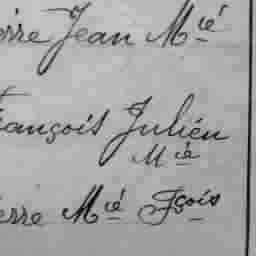 ierre Jean Mié
rançois Julien
Mié
ierre Mié Fçois